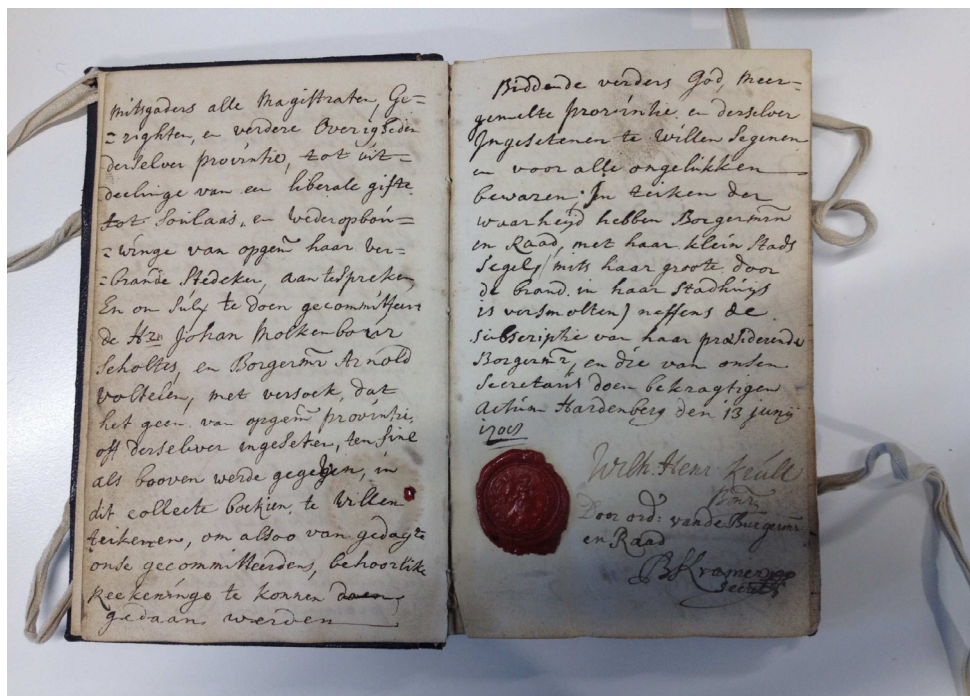 mitsgaders alle Magistraten, Ge=
=righten, en verdere Overigheden
derselver provintie, tot uit=
deelinge van een liberale gifte
tot Soulaas, en wederopbou=
=winge van opgem haar ver=
=brande Stedeken, aan te spreken,
En om sulx te doen gecommitteert
de Hrn Johan Molkenbour
Scholtes, en Borgermr Arnold
Voltelen, met versoek, dat
het geen van opgem provintie,
off derselver ingeseten, ten fine
als booven werde gegeven, in
dit collecte boekien, te willen
teikenen, om alsoo van gedagte
onse gecommitteerdens, behoorlike
Reekeninge te konnen doen,
gedaan werden
Biddende verders God, meer=
gemelte provintie, en derselver
Ingesetenen te willen Segenen
en voor alle ongelukken
bewaren; In teiken der
waarheijd hebben Borgermrn
en Raad, met haar klein Stads
Segel, (mits haar groote door
de brand in haar Stadhuijs
is versmolten) neffens de
subscriptie van haar praesiderende
Borgermr, en die van onsen
Secretaris doen bekragtigen
Actum Hardenberg den 13 junij
1708
Wilh. Henr Keüll
Door ord: van de Burgermrn
en Raad
B Kramer
Secrets